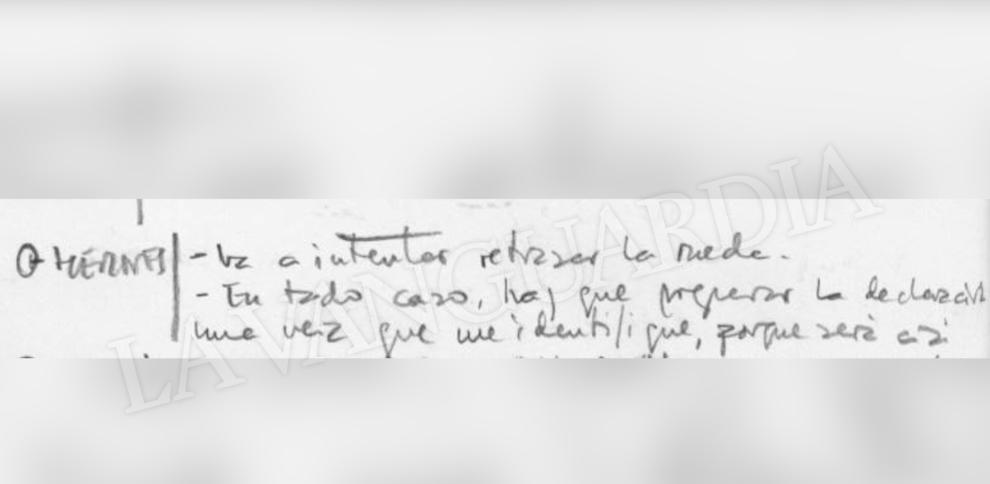 - Va a intentar retrasar la rueda.
- En todo caso, hay que preparar la declaración
una vez que me identifique, porque será así
LA VANGUARDIA